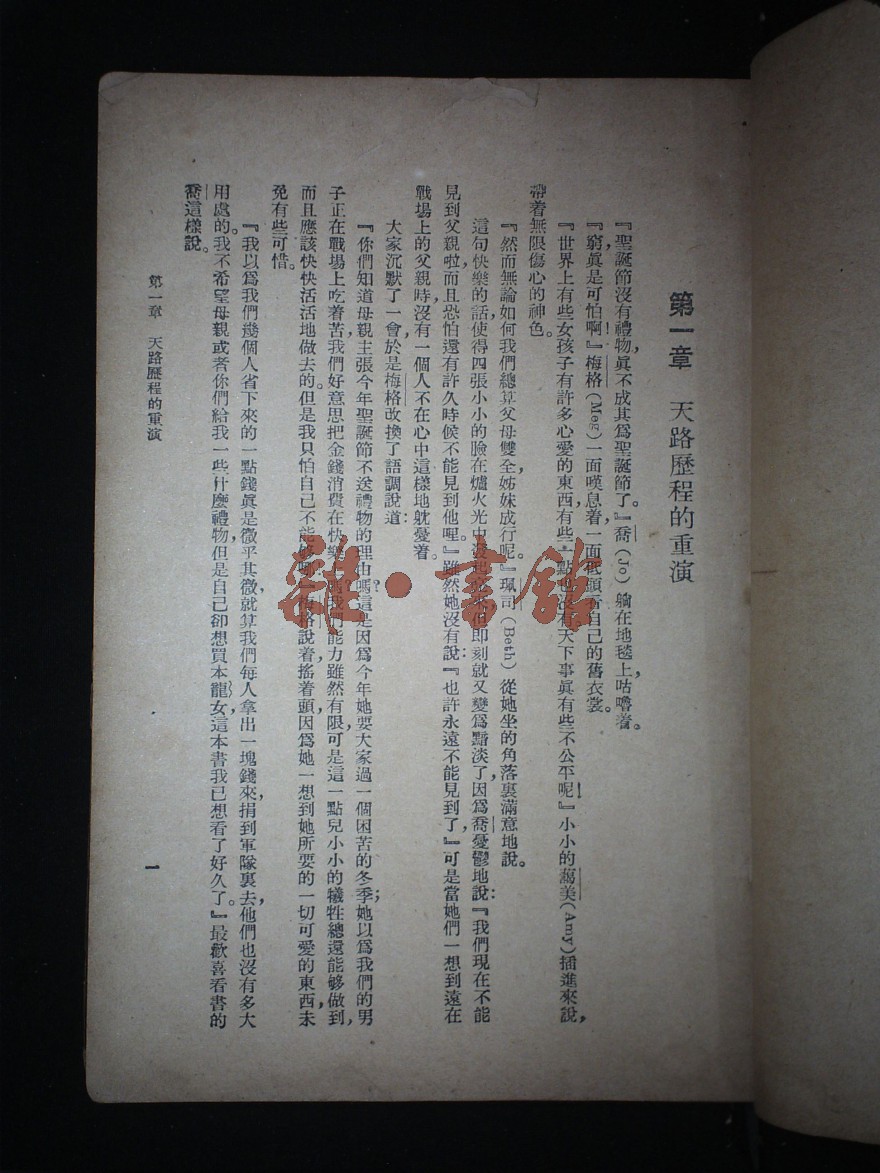 第一章 天路歷程的重演
『聖誕節沒有禮物，眞不成其爲聖誕節了。』喬(Jo)躺在地毯上咕嚕着。
『窮眞是可怕啊！』梅格(Meg)一面嘆息着，一面低頭看自己的舊衣裳。
『世界上有些女孩子有許多心愛的東西，有些一點也沒有，天下事眞有些不公平呢！』小小的 美(Amy)插進來說，
帶着無限傷心的神色。
『然而無論如何我們總算父母雙全，姊妹成行呢。』珮司(Beth)從她坐的角落裏滿意地說。
這句快樂的話使得四張小小的臉在爐火光中 但卽刻就又變爲黯淡了，因爲喬憂鬱地說：『我們現在不能
見到父親啦，而且恐怕還有許久時候不能見到他哩。』雖然她沒有說：『也許永遠不能見到了，』可是當她們一想到遠在
戰場上的父親時，沒有一個人不在心中這樣地躭憂着。
大家沉默了一會，於是梅格改換了語調說道：
『你們知道母親主張今年聖誕節不送禮物的理由嗎？這是因爲今年她要大家過一個困苦的冬季；她以爲我們的男
子正在戰場上吃着苦，我們好意思把金錢消費在快樂 嗎？我們能力雖然有限，可是這一點兒小小的犧牲總還能够做到，
而且應該快快活活地做去的。但是我只怕自己不能够 梅格說着，搖着頭，因爲她一想到她所要的一切可愛的東西，未
免有些可惜。
『我以爲我們幾個人省下來的一點錢眞是微乎其微，就算我們每人拿出一塊錢來，捐到軍隊裏去，他們也沒有多大
用處的。我不希望母親或者你們給我一些什麼禮物，但是自己卻想買本龍女，這本書我已想看了好久了。』最歡喜看書的
喬這樣說。
第一章 天路歷程的重演
一
雜·書館